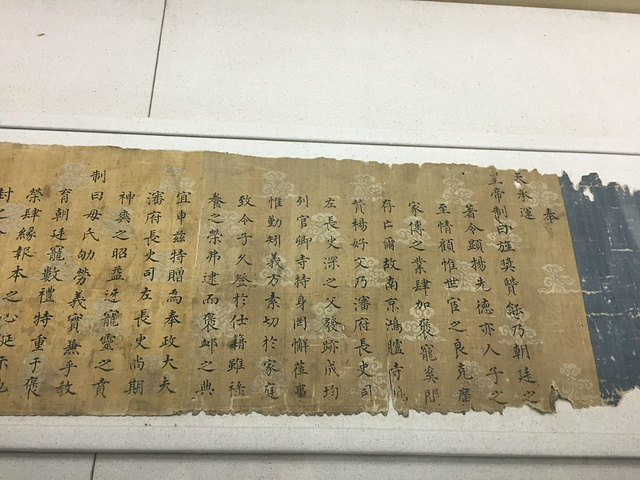 奉
天承運
皇帝制曰旌奬賢能乃朝廷之
著令顯揚先德亦人子之
至情顧惟世官之良克廕
家傳之業肆加褒寵奚間
存亡爾故南京鴻臚寺鳴
贊楊好文乃瀋府長史司
左長史深之父發跡成均
列官卿寺持身罔懈蒞事
惟勤矧義方素切於家庭
致令子久登於仕籍雖祿
養之榮弗逮而褒卹之典
宜申茲特贈為奉政大夫
瀋府長史司左長史尚期
神爽之昭益迓寵靈之賁
制曰母氏劬勞義實兼乎教
育朝廷寵數禮特重于褒
榮肆緣報本之心延示也
封之